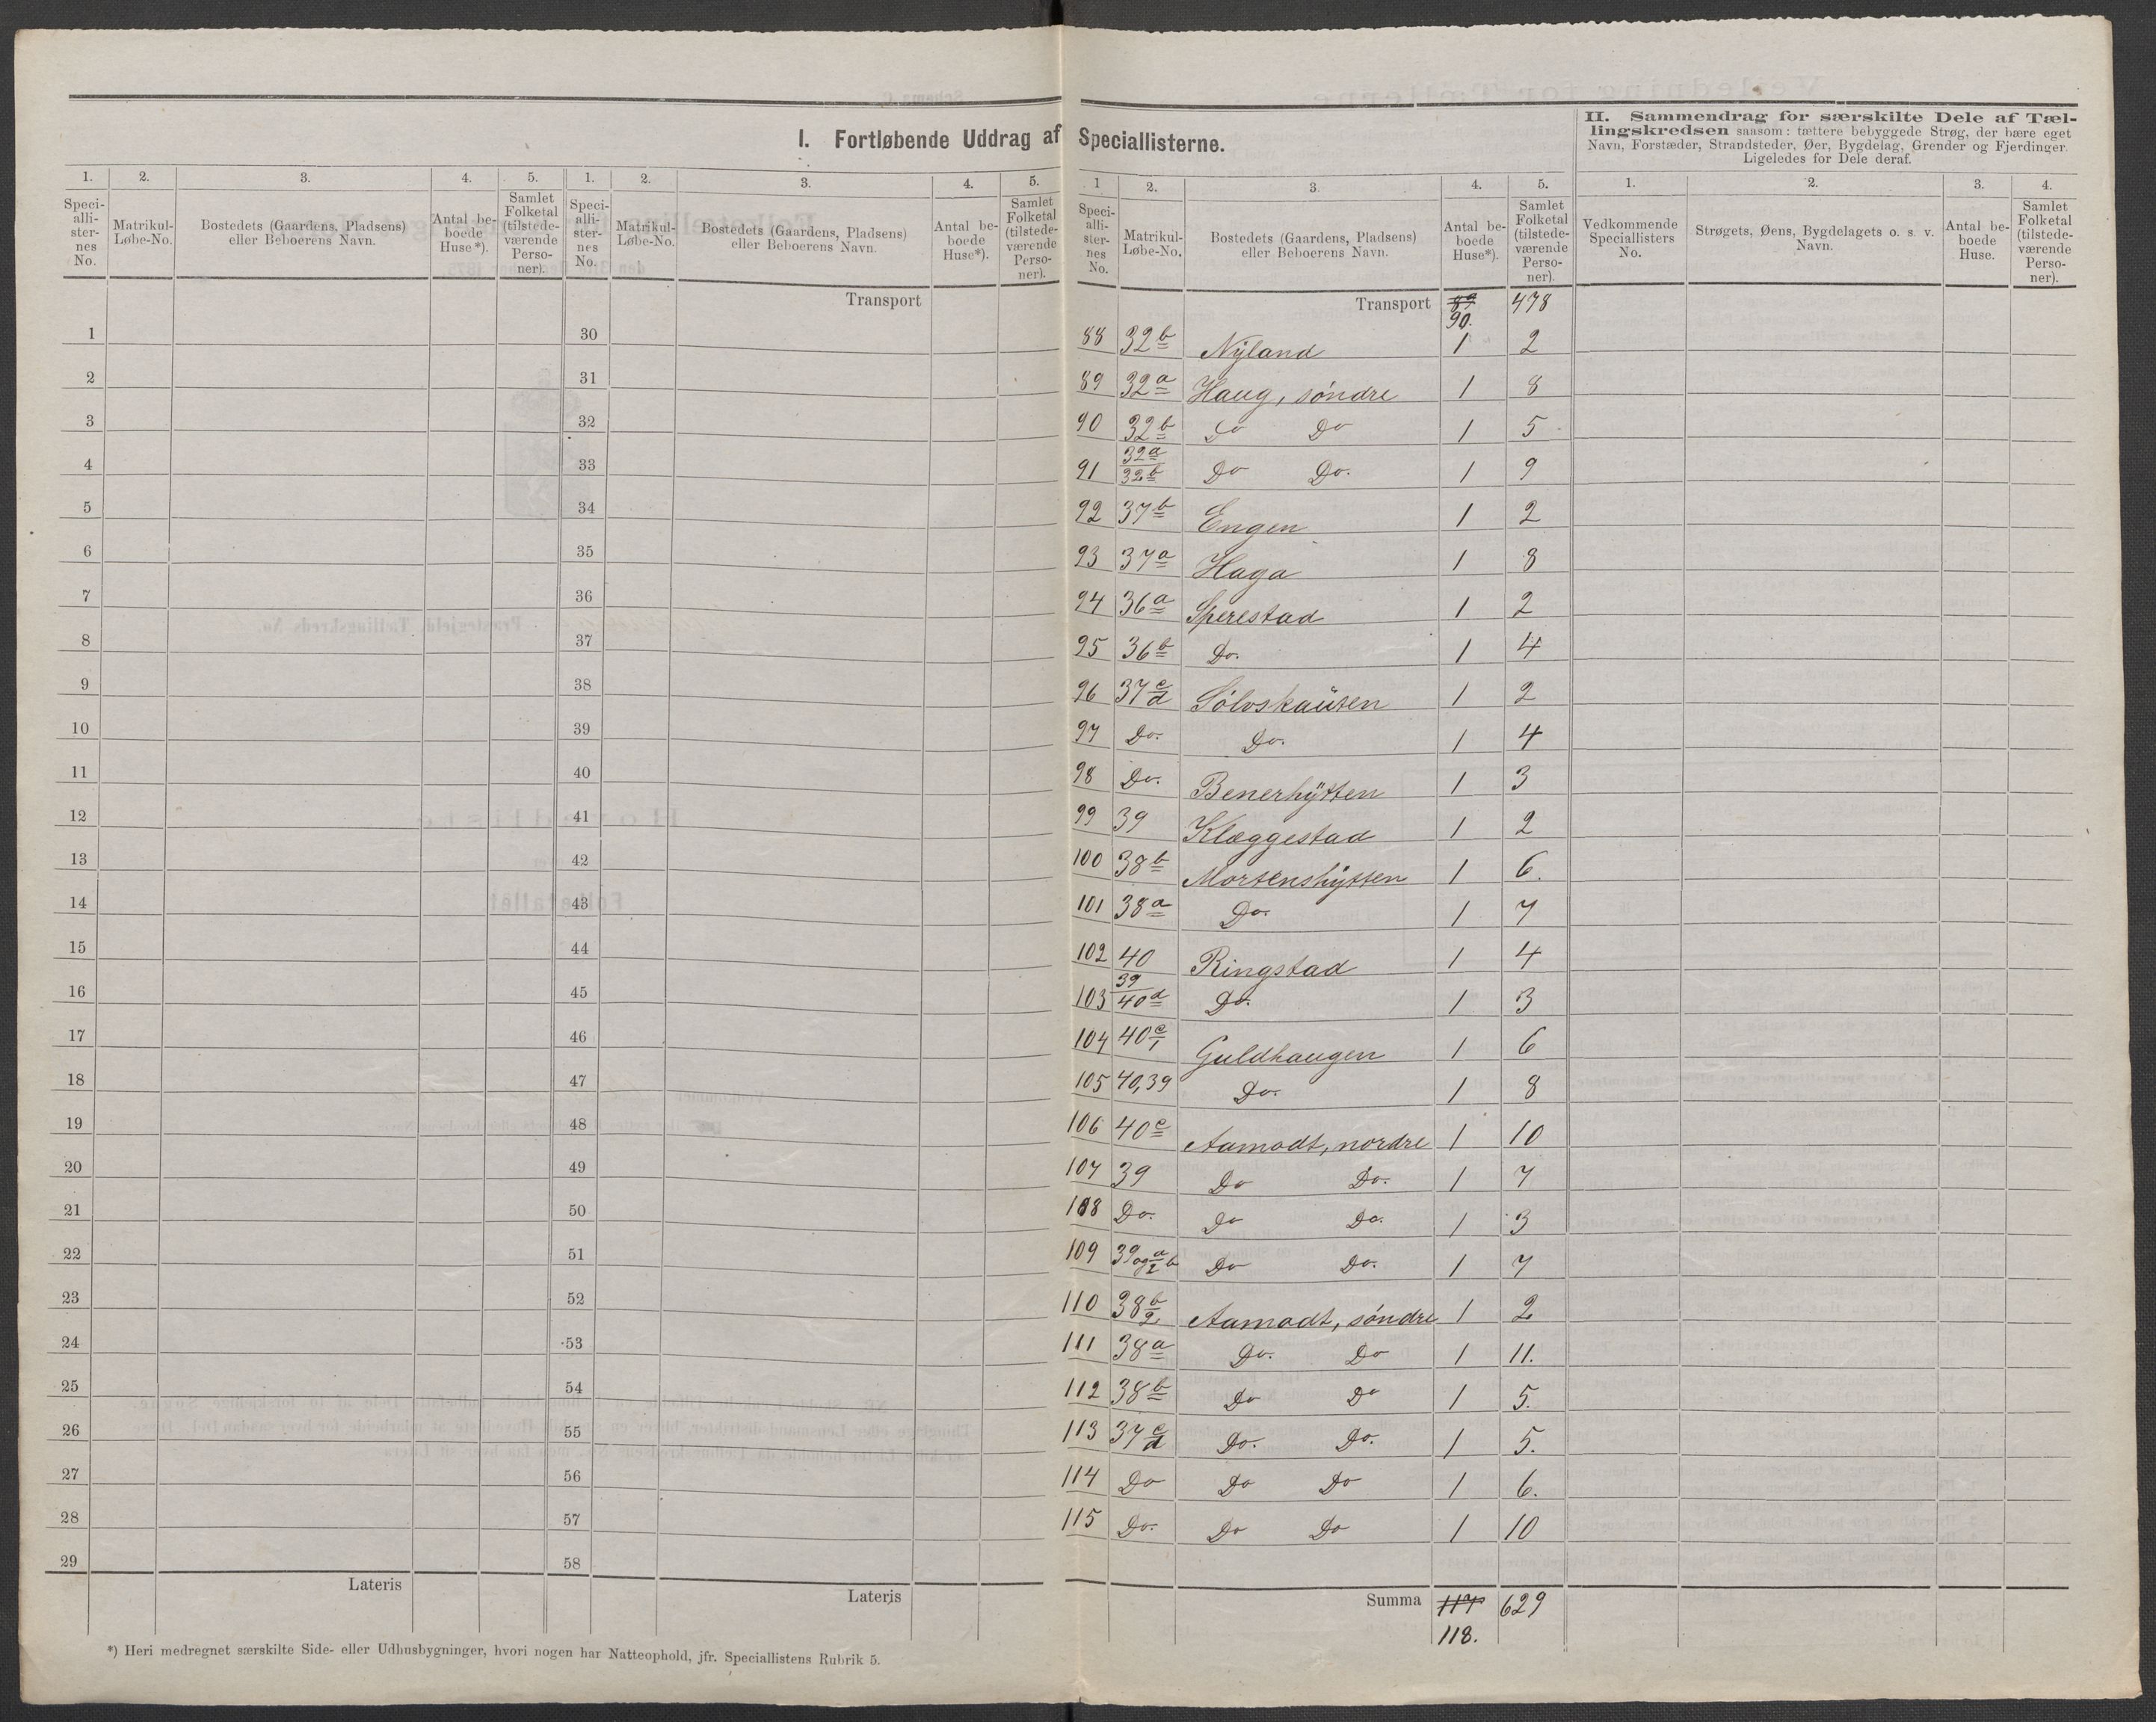 I. Fortløbende Uddrag af Speciallisterne.
II. Sammendrag for særskilte Dele af Tællingskredsen saasom: tættere bebyggede Strøg, der bære eget Navn, Forstæder, Strandsteder, Øer, Bygdelag, Grender og Fjerdinger. Ligeledes for Dele deraf.
1. 2. 3. 4. 5. 1. 2. 3. 4. 5. 1 2. 3. 4. 5. 1. 2. 3. 4.
Speciallisternes No. Matrikul-Løbe-No. Bostedets (Gaardens, Pladsens) eller Beboerens Navn. Antal beboede Huse*). Samlet Folketal (tilstedeværende Personer).
Speciallisternes No. Matrikul-Løbe-No. Bostedets (Gaardens, Pladsens) eller Beboerens Navn. Antal beboede Huse*). Samlet Folketal (tilstedeværende Personer).
Speciallisternes No. Matrikul-Løbe-No. Bostedets (Gaardens, Pladsens) eller Beboerens Navn. Antal beboede Huse*). Samlet Folketal (tilstedeværende Personer).
Vedkommende Speciallisters No. Strøgets, Øens, Bygdelagets o. s. v. Navn. Antal beboede Huse. Samlet Folketal (tilstedeværende Personer).
Transport
Transport 89 478
90.
1 30 88 32b Nyland 1 2
2 31 89 32a Haug, söndre 1 8
3 32 90 32b Do Do 1 5
4 33 91 32a/32b Do Do. 1 9
5 34 92 37b Engen 1 2
6 35 93 37a Haga 1 8
7 36 94 36a Sperestad 1 2
8 37 95 36b Do. 1 4
9 38 96 37c/d Sölvskaüten 1 2
10 39 97 Do. Do. 1 4
11 40 98 Do. Benerhytten 1 3
12 41 99 39 Klæggestad 1 2
13 42 100 38b Mortenshytten 1 6.
14 43 101 38a Do. 1 7
15 44 102 40 Ringstad 1 4
16 45 103 39/40d Do. 1 3
17 46 104 40c/1 Guldhaugen 1 6
18 47 105 40,39 Do. 1 8
19 48 106 40c Aamodt, nordre 1 10
20 49 107 39 Do Do. 1 7
21 50 108 Do. Do Do. 1 3
22 51 109 39 og a/2 b Do Do. 1 7
23 52 110 38b/2 Aamodt, söndre 1 2
24 53 111 38a Do. Do 1 11.
25 54 112 38b Do Do 1 5.
26 55 113 37c/d Do. Do. 1 5.
27 56 114 Do Do Do 1 6.
28 57 115 Do. Do Do 1 10
29 58
Lateris Lateris Summa 117 629
118.
*) Heri medregnet særskilte Side- eller Udhusbygninger, hvori nogen har Natteophold, jfr. Speciallistens Rubrik 5.